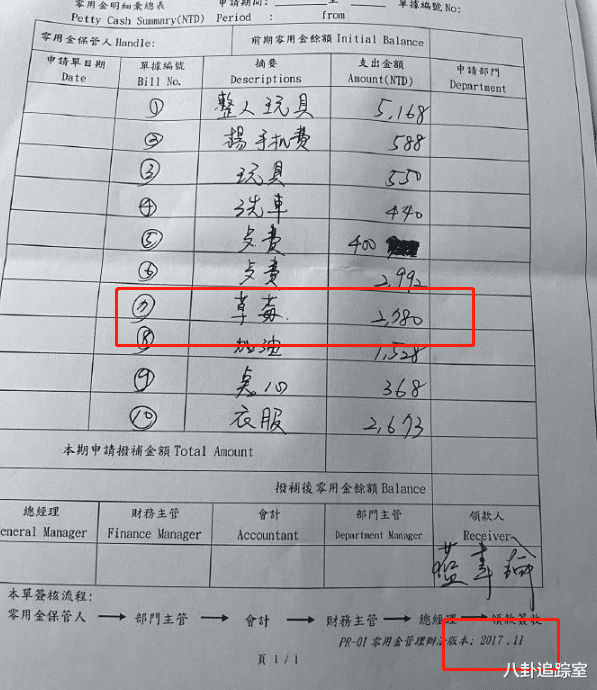 零用金明細彙總表 申請期間: 至 單據編號 No:
Petty Cash Summary(NTD) Period : from
零用金保管人 Handle: 前期零用金餘額 Initial Balance
申請單日期 單據編號 摘要 支出金額 申請部門
Date Bill No. Descriptions Amount(NTD) Department
① 整人玩具 5,168
② 楊手机費 588
③ 玩具 550
④ 洗車 440
⑤ 点費 400
⑥ 点費 2,992
⑦ 草莓 2,780
⑧ 加油 1,528
⑨ 点心 368
⑩ 衣服 2,673
本期申請撥補金額 Total Amount
撥補後零用金餘額 Balance
總經理 財務主管 會計 部門主管 領款人
General Manager Finance Manager Accountant Department Manager Receiver
本單簽核流程:
零用金保管人 → 部門主管 → 會計 → 財務主管 → 總經理 → 領款簽收
PR-01 零用金管理辦法版本: 2017.11
頁 1 / 1
八卦追踪室